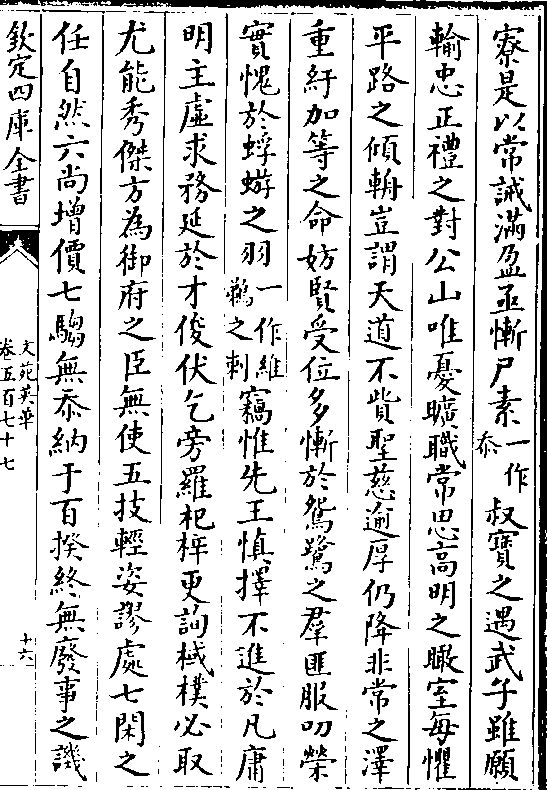 寮是以常誡滿盈亟慚尸素一作忝叔寶之遇武子雖願
輸忠正禮之對公山唯憂曠職常思高明之瞰室每懼
平路之傾輈豈謂天道不貲聖慈逾厚仍降非常之澤
重紆加等之命妨賢受位多慚於鴛鷺之羣匪服叨榮
實愧於蜉蝣之羽一作維鵜之刺竊惟先王慎擇不進於凡庸
明主虛求務延於才俊伏乞旁羅杞梓更詢棫樸必取
尤能秀傑方為御府之臣無使五技輕姿謬處七閑之
任自然六尚增價七騶無忝納于百揆終無廢事之譏
欽定四庫全書
文苑英華
卷五百七十七
十六